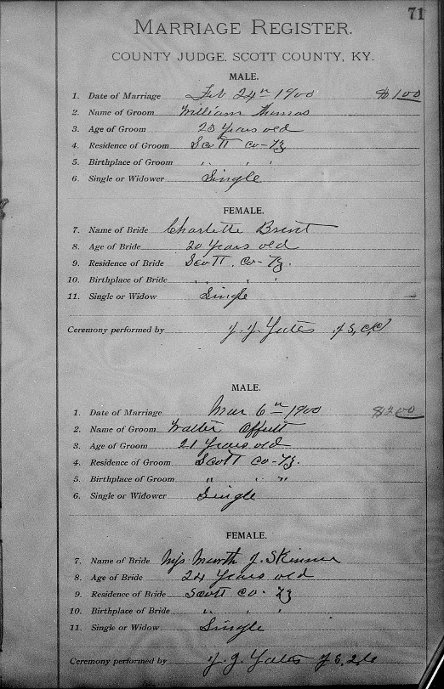 71
MARRIAGE REGISTER.
COUNTY JUDGE, SCOTT COUNTY, KY.
MALE.
1. Date of Marriage Feb 24th 1900 $1.00
2. Name of Groom William Thomas
3. Age of Groom 20 Years old
4. Residence of Groom Scott Co - Ky
5. Birthplace of Groom " " "
6. Single or Widower Single
FEMALE.
7. Name of Bride Charlotte Brent
8. Age of Bride 20 Years old
9. Residence of Bride Scott. Co - Ky.
10. Birthplace of Bride " " "
11. Single or Widow Single
Ceremony performed by Yates
MALE.
1. Date of Marriage Mar 6th 1900 $2.00
2. Name of Groom Walter Offutt
3. Age of Groom 21 Years old
4. Residence of Groom Scott Co - Ky.
5. Birthplace of Groom " " "
6. Single or Widower Single
FEMALE.
7. Name of Bride J. Skinner
8. Age of Bride 24 Years old
9. Residence of Bride Scott Co - Ky
10. Birthplace of Bride " " "
11. Single or Widow Single
Ceremony performed by Yates